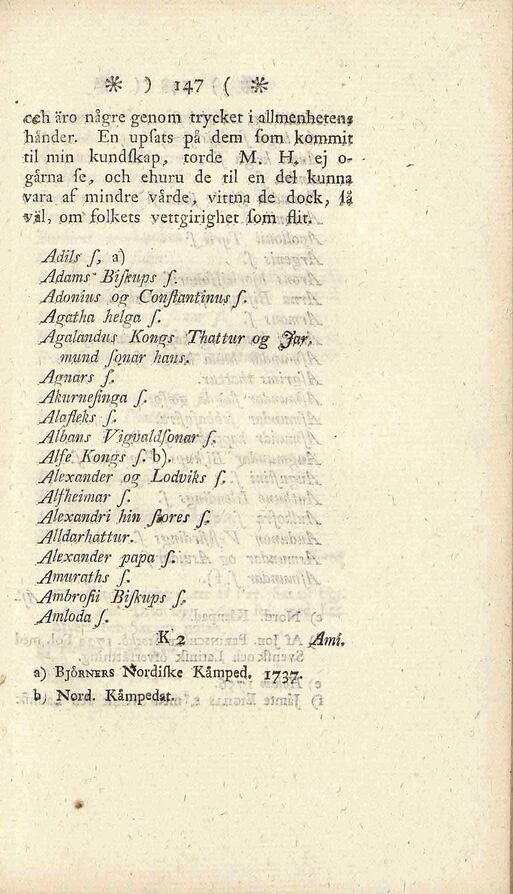 ❋ ) 147 ( ❋
och äro någre genom trycket i allmenhetens
hånder. En upſats på dem ſom kommit
til min kundſkap, torde M. H. ej o-
gårna ſe, och ehuru de til en del kunna
vara af mindre vårde, vittna de dock, ſå
vål, om folkets vettgirighet ſom flit.
Adils ſ, a)
Adams Biſkups ſ.
Adonius og Conſtantinus ſ.
Agatha helga ſ.
Agalandus Kongs Thattur og Jar,
mund ſonar hans.
Agnars ſ.
Akurneſinga ſ.
Alafleks ſ.
Albans Vigvaldſonar ſ.
Alfe Kongs ſ. b).
Alexander og Lodviks ſ.
Alfheimar ſ.
Alexandri hin ſtores ſ.
Alldarhattur.
Alexander papa ſ.
Amuraths ſ.
Ambroſii Biſkups ſ.
Amloda ſ.
K 2 Ami.
a) BJÖRNERS Nordiſke Kåmped. 1737.
b) Nord. Kåmpedat.